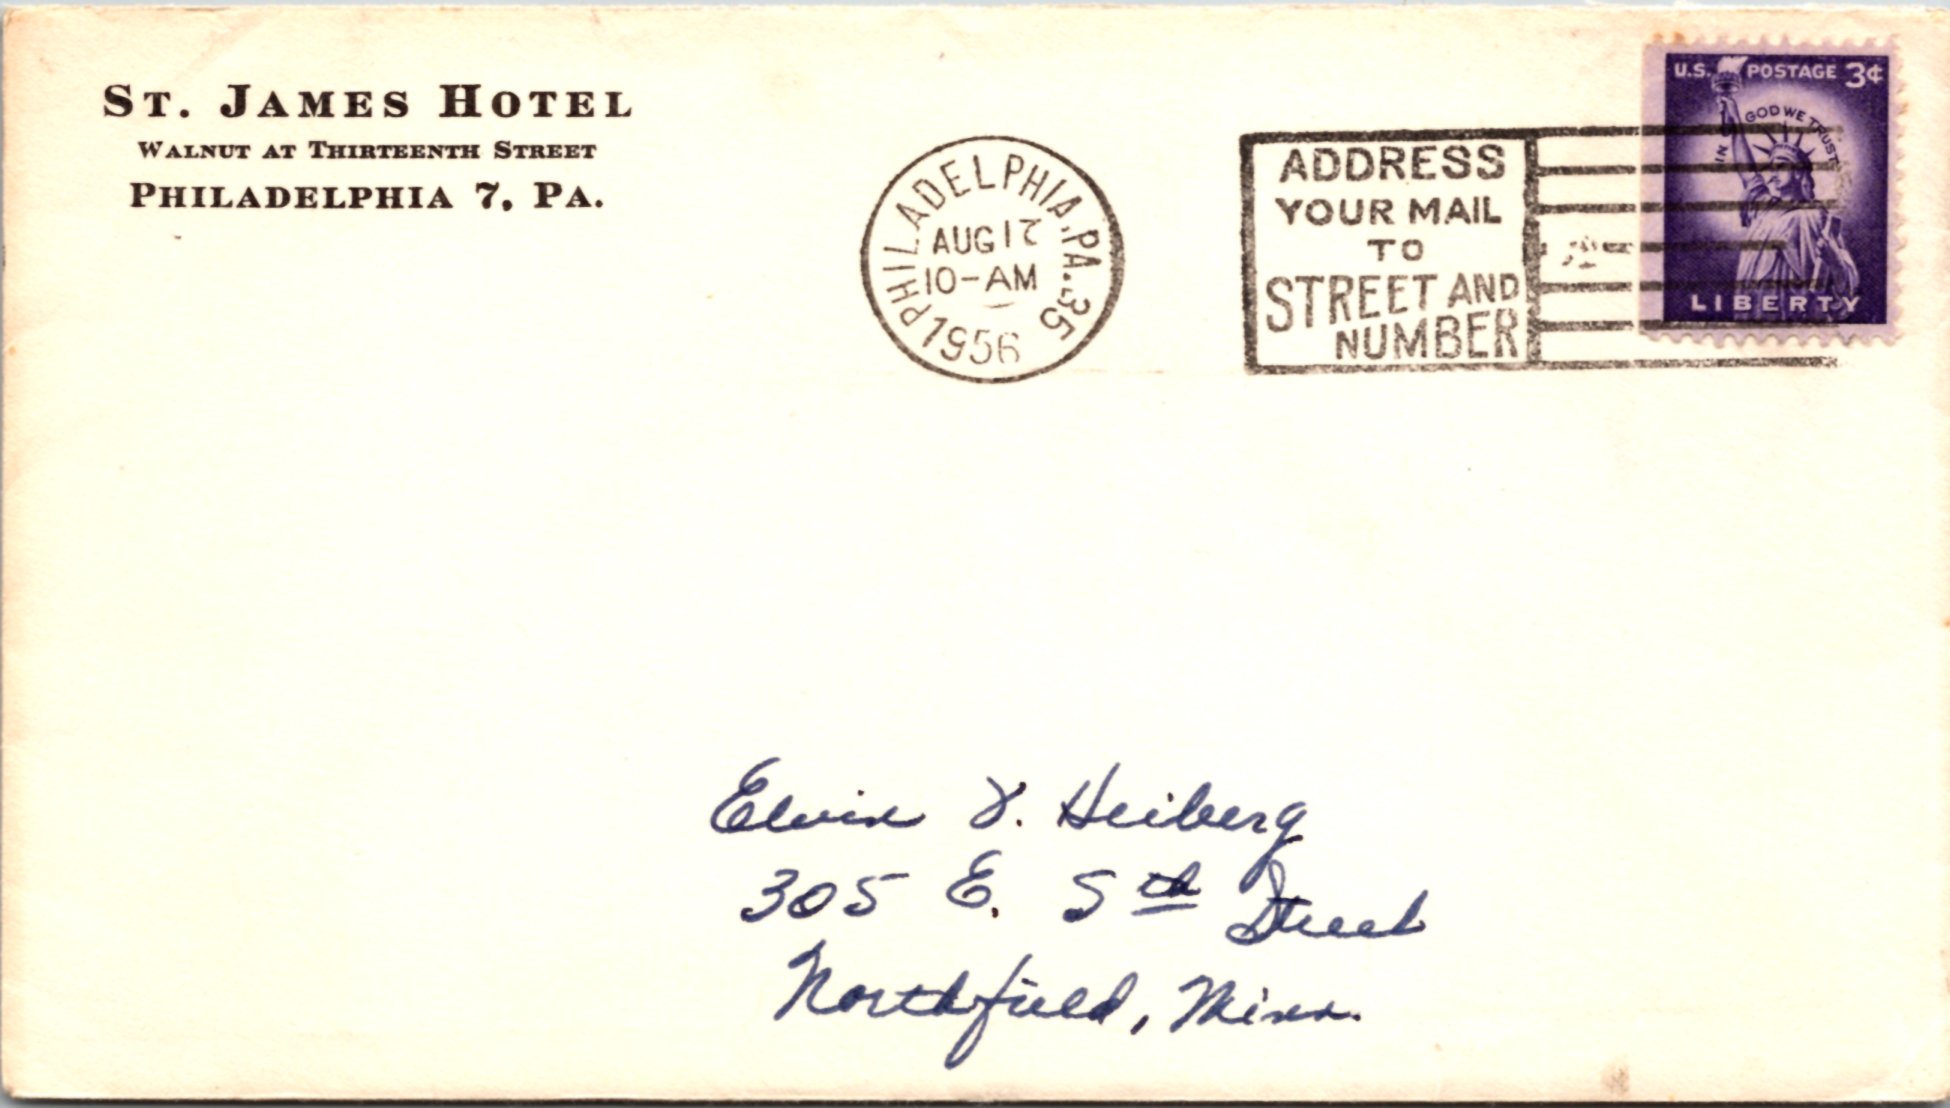 ST. JAMES HOTEL
WALNUT AT THIRTEENTH STREET
PHILADELPHIA 7, PA.
PHILADELPHIA, PA. 35
AUG 17
10-AM
1956
ADDRESS
YOUR MAIL
TO
STREET AND
NUMBER
U.S. POSTAGE 3¢
IN GOD WE TRUST
LIBERTY
Elvin Heiberg
305 E. 5th Street
Northfield, Minn.